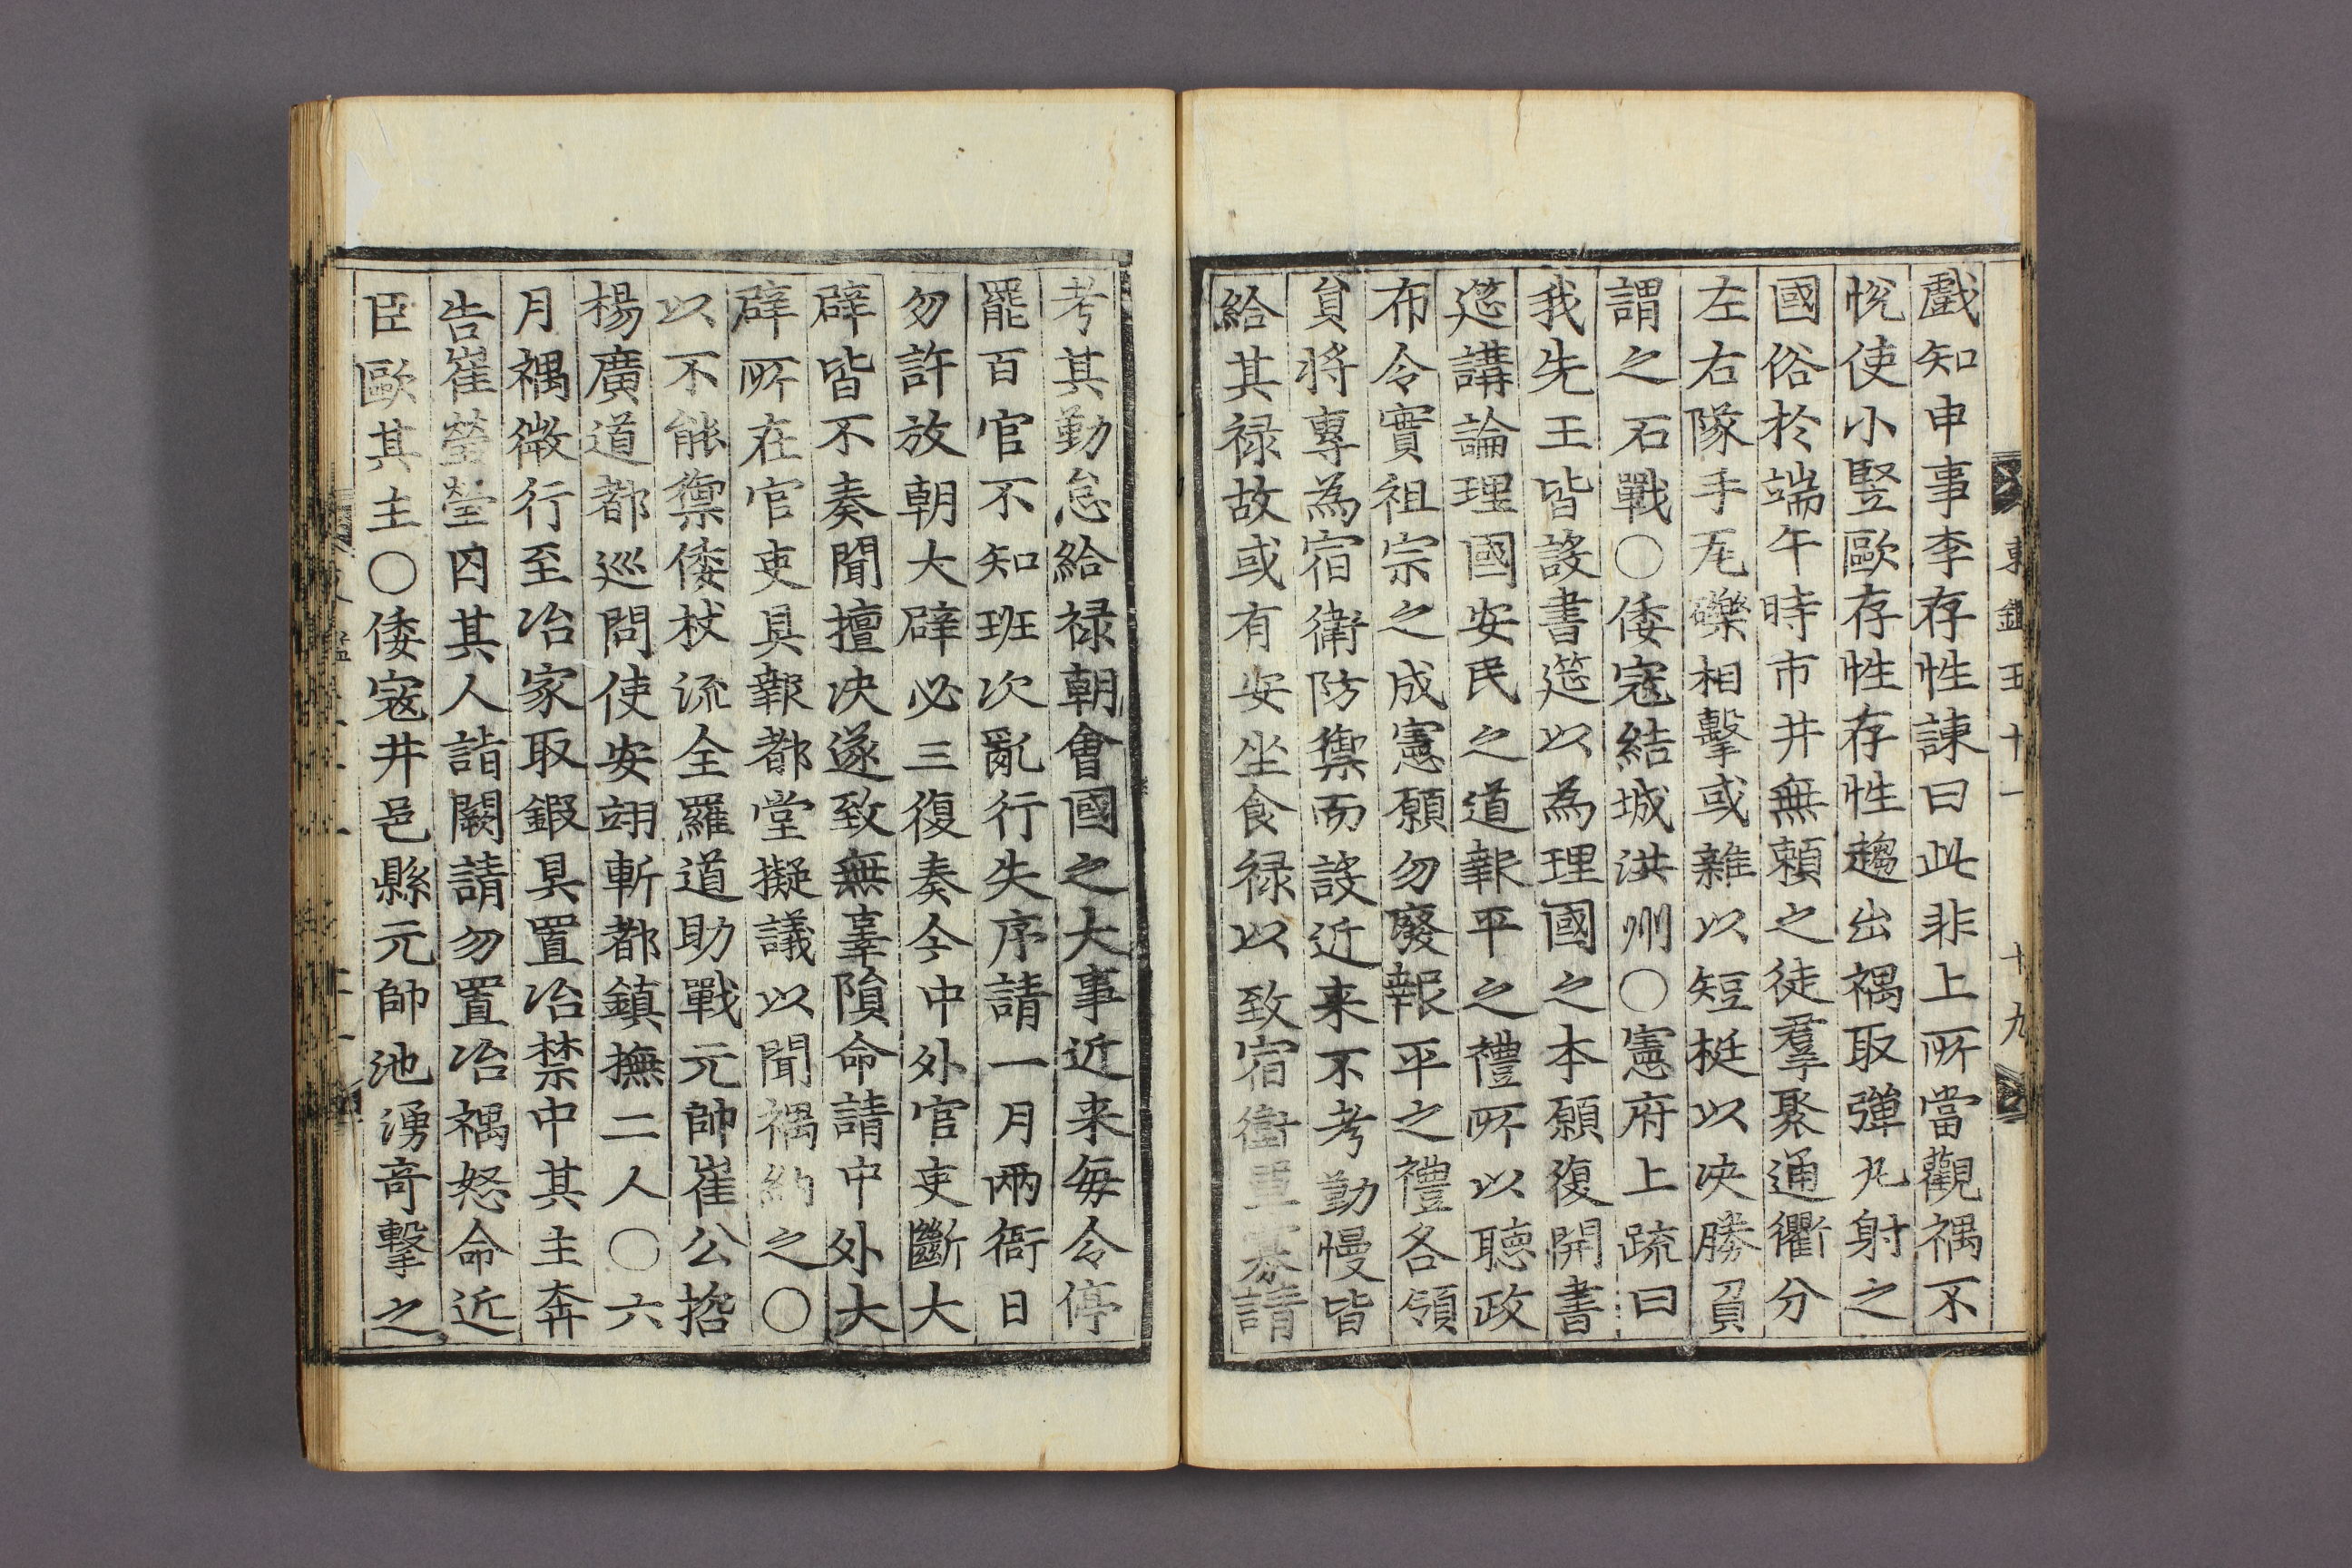 東鑑五十一 十九
戱知申事李存性諫曰此非上所當觀禑不
悅使小竪歐存性存性趨出禑取彈丸射之
國俗於端午時市井無賴之徒羣聚通衢分
左右隊手瓦礫相擊或雜以短梃以决勝負
謂之石戰○倭寇結城洪州○憲府上疏曰
我先王皆設書筵以為理國之本願復開書
筵講論理國安民之道報平之禮所以聽政
布令實祖宗之成憲願勿廢報平之禮各領
貟將專為宿衛防禦而設近来不考勤慢皆
給其禄故或有安坐食禄以致宿衛單寡請
考其勤怠給禄朝會國之大事近来每令停
罷百官不知班次亂行失序請一月兩衙日
勿許放朝大辟必三復奏今中外官吏斷大
辟皆不奏聞擅决遂致無辜隕命請中外大
辟所在官吏具報都堂擬議以聞禑納之○
以不能禦倭杖流全羅道助戰元帥崔公招
楊廣道都巡問使安翊斬都鎮撫二人○六
月禑微行至冶家取鍜具置冶禁中其主奔
告崔瑩瑩囚其人詣闕請勿置冶禑怒命近
臣歐其主○倭寇井邑縣元帥池湧竒擊之